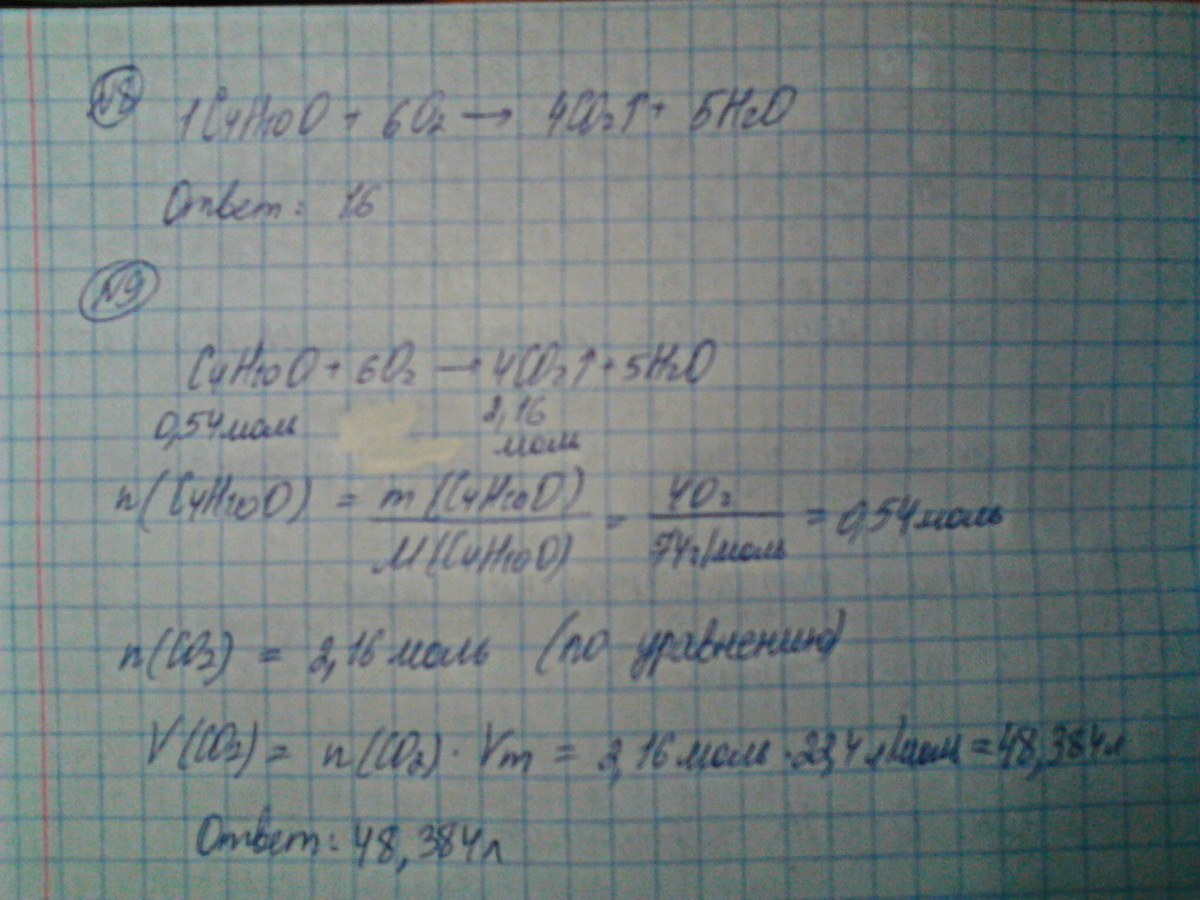 №8
1C₄H₁₀O + 6O₂ → 4CO₂↑ + 5H₂O
Ответ: 16
№9
C₄H₁₀O + 6O₂ → 4CO₂↑ + 5H₂O
0,54 моль 2,16 моль
n(C₄H₁₀O) = m(C₄H₁₀O) / M(C₄H₁₀O) = 40г / 74г/моль = 0,54 моль
n(CO₂) = 2,16 моль (по уравнению)
V(CO₂) = n(CO₂) · Vm = 2,16 моль · 22,4 л/моль = 48,384л
Ответ: 48,384л